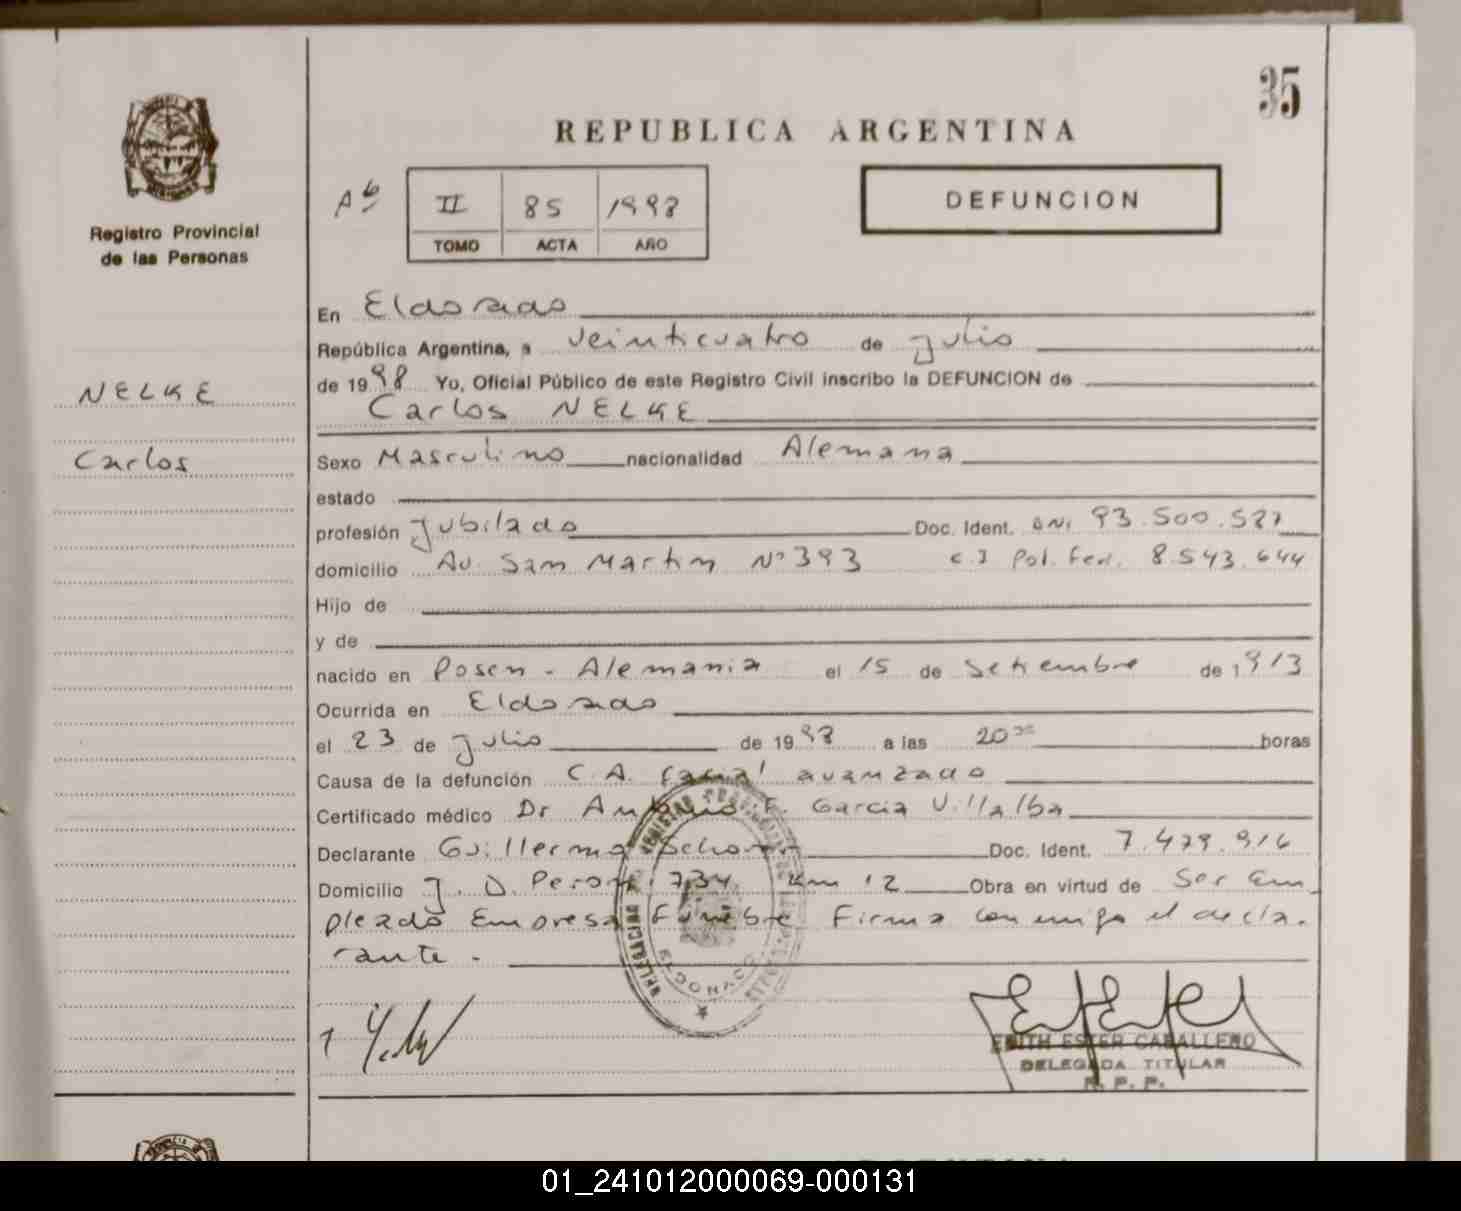 35
REPUBLICA ARGENTINA
DEFUNCION
II 85 1998
TOMO ACTA AÑO
Registro Provincial
de las Personas
NELKE
Carlos
En Eldorado
República Argentina, a veinticuatro de julio
de 1998 Yo, Oficial Público de este Registro Civil inscribo la DEFUNCION de
Carlos NELKE
Sexo Masculino nacionalidad Alemana
estado
profesión Jubilado Doc. Ident. DNI 93.500.527
domicilio Av. San Martin Nº 393 C.I Pol. Fed. 8.543.644
Hijo de
y de
nacido en Posen - Alemania el 15 de Setiembre de 1913
Ocurrida en Eldorado
el 23 de julio de 1998 a las 20 horas
Causa de la defunción C.A. facial avanzado
Certificado médico Dr Antonio F. Garcia Villalba
Declarante Guillermo Doc. Ident. 7.479.916
Domicilio J. D. Peron 734 Km 12 Obra en virtud de Ser em
pleado Empresa Fúnebre Firma conmigo el decla-
rante -
ELDORADO
EDITH ESTER CABALLERO
DELEGADA TITULAR
R. P. P.
01_241012000069-000131